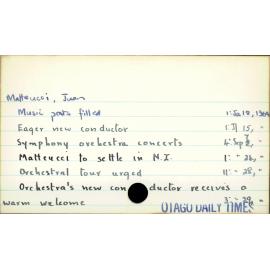 Matteucci, Juan
Music posts filled 1: Ja 18, 1964
Eager new conductor 1: Jl 15, "
Symphony orchestra concerts 4: Sep 2, "
Matteucci to settle in N.Z. 1: " 26, "
Orchestral tour urged 11: " 28, "
Orchestra's new conductor receives a
warm welcome 3: " 29, "
OTAGO DAILY TIMES